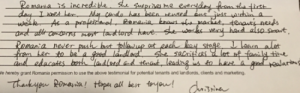 Romania is incredible. She surprise me everyday from the first
day I met her. My condo has been rented out just within a
week. As a professional, Romania knows the market, tenants needs
and all concerns most landlord have. She works very hard also smart,
Romania never push but followup at each key stage. I learn alot
from her to be a good landlord. She sacrifies a lot of family time
and educates both landlord and tenant, leading us to have a good relationship
hereto grant Romania permission to use the above testimonial for potential tenants and landlords, clients and marketing.
Thankyou Romania! Hope all best to you!